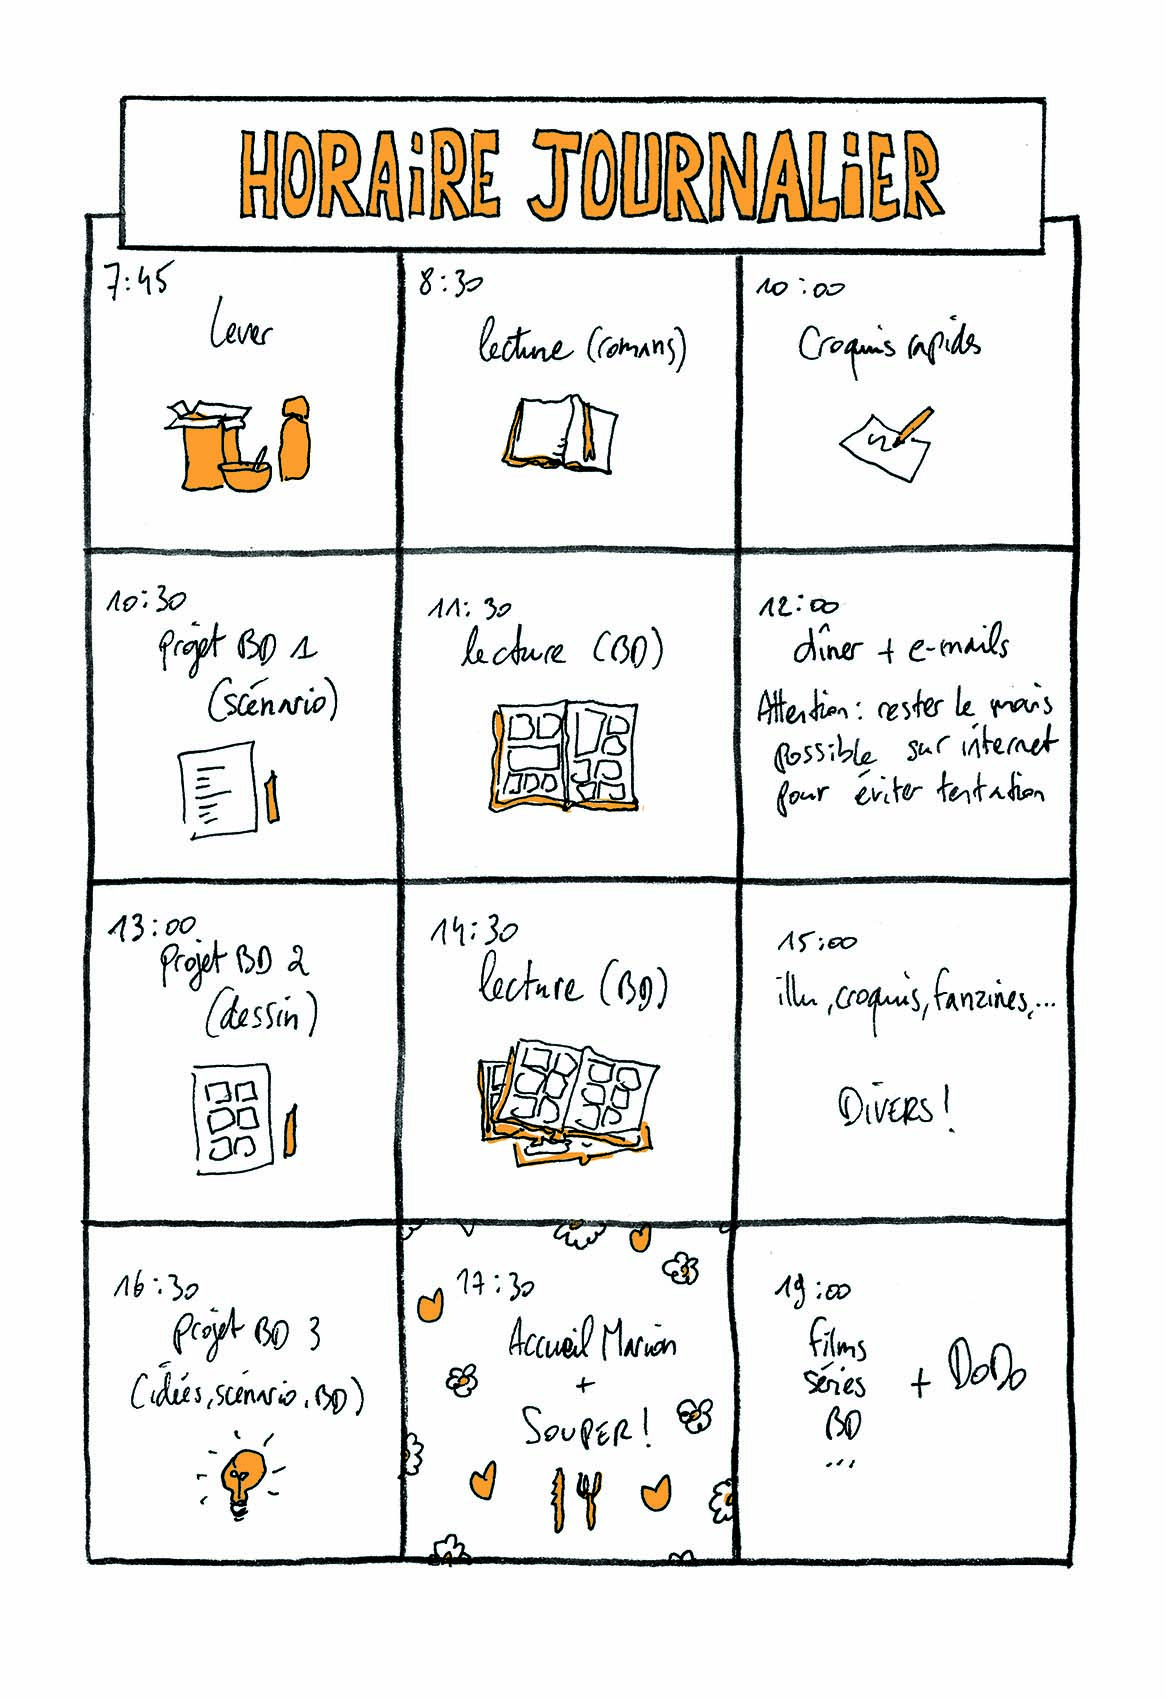 HORAiRE JOURNALiER
7:45
Lever
8:30
lecture (romans)
10:00
Croquis rapides
10:30
Projet BD 1
(scénario)
11:30
lecture (BD)
12:00
dîner + e-mails
Attention: rester le mois
possible sur internet
pour éviter tentation
13:00
Projet BD 2
(dessin)
14:30
lecture (BD)
15:00
illu, croquis, fanzines,...
DiVERS!
16:30
Projet BD 3
(idées, scénario, BD)
17:30
Accueil Marion
+
SOUPER!
19:00
films
séries
BD
...
+ DoDo